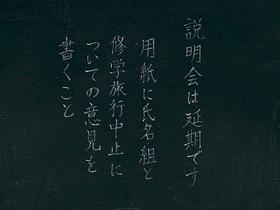 説明会は延期です
用紙に氏名組と
修学旅行中止に
ついての意見を
書くこと